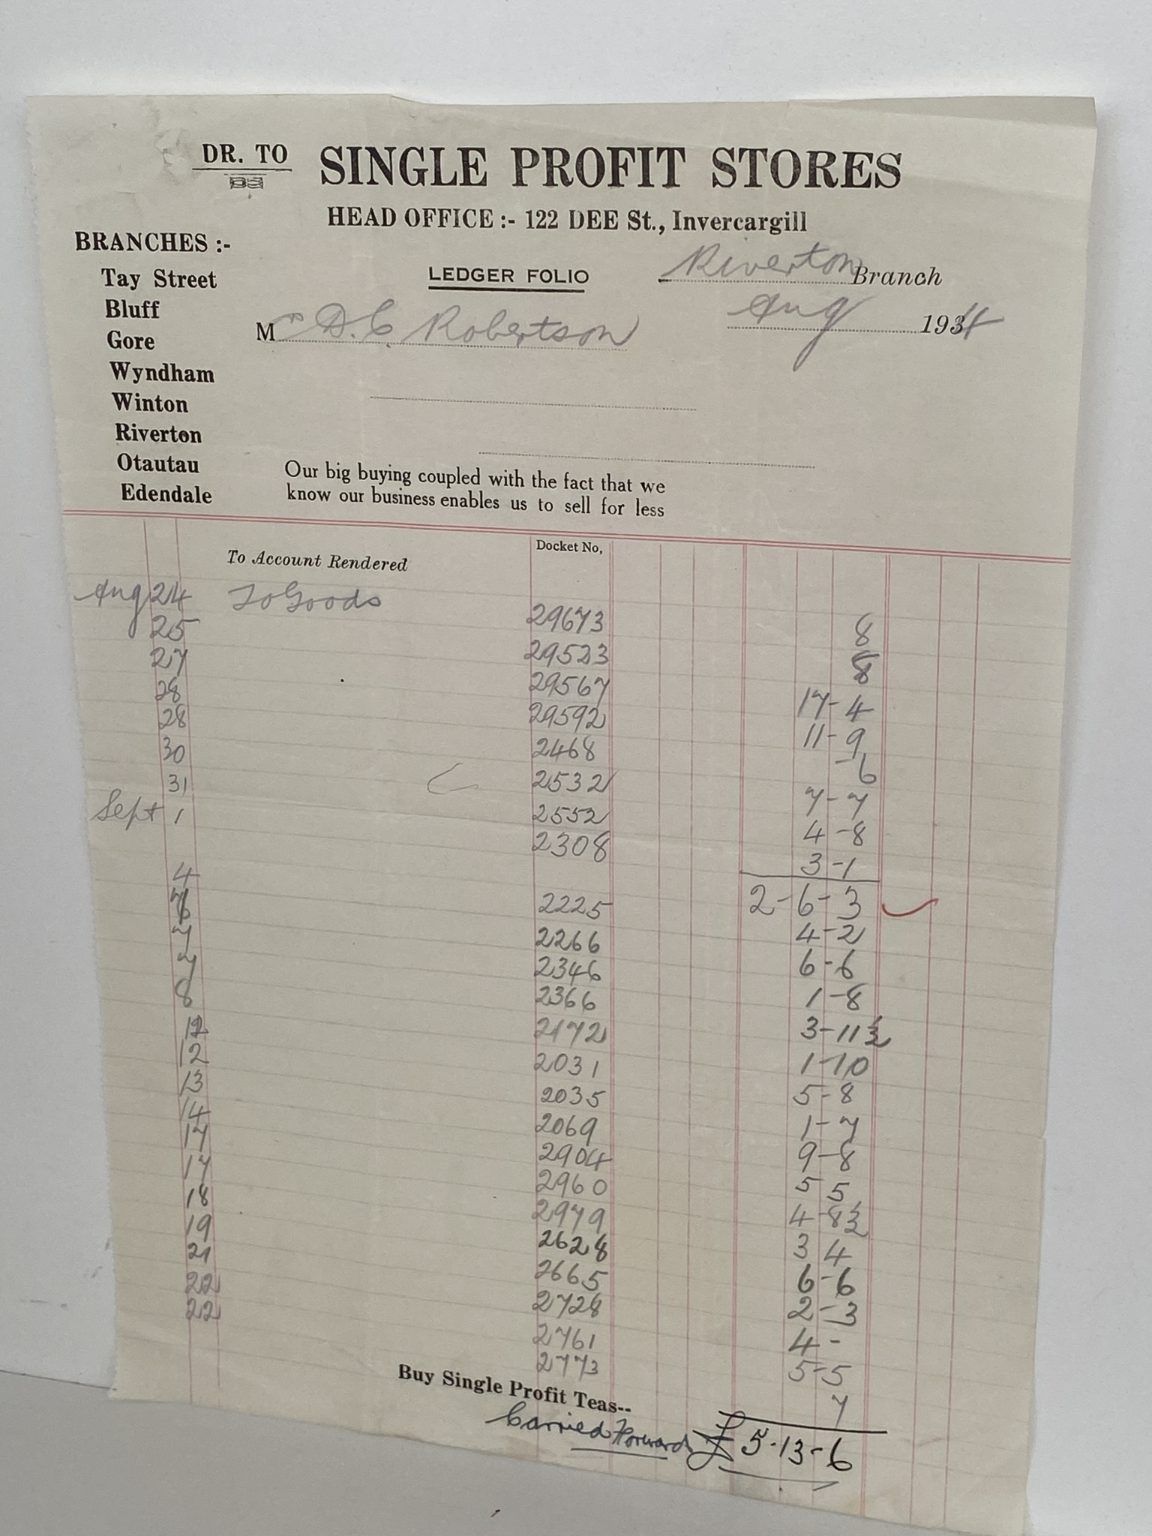 DR. TO SINGLE PROFIT STORES
HEAD OFFICE :- 122 DEE St., Invercargill
BRANCHES :-
Tay Street
Bluff
Gore
Wyndham
Winton
Riverton
Otautau
Edendale
LEDGER FOLIO
Riverton Branch
Aug 1934
Mr D. C. Robertson
Our big buying coupled with the fact that we
know our business enables us to sell for less
To Account Rendered Docket No,
Aug 24 To Goods 29673 8
25 29523 8
27 29567 17-4
28 29592 11-9
28 2468 -6
30 2532 7-7
31 2552 4-8
Sept 1 2308 3-1
2-6-3
4 2225 4-2
6 2266 6-6
7 2346 1-8
7 2366 3-11½
8 2172 1-10
12 2031 5-8
12 2035 1-7
13 2069 9-8
14 2904 5 5
17 2960 4-8½
17 2979 3 4
18 2628 6-6
19 2665 2-3
21 2728 4-
22 2761 5-5
22 2773 7
Buy Single Profit Teas--
Carried Forward £5-13-6